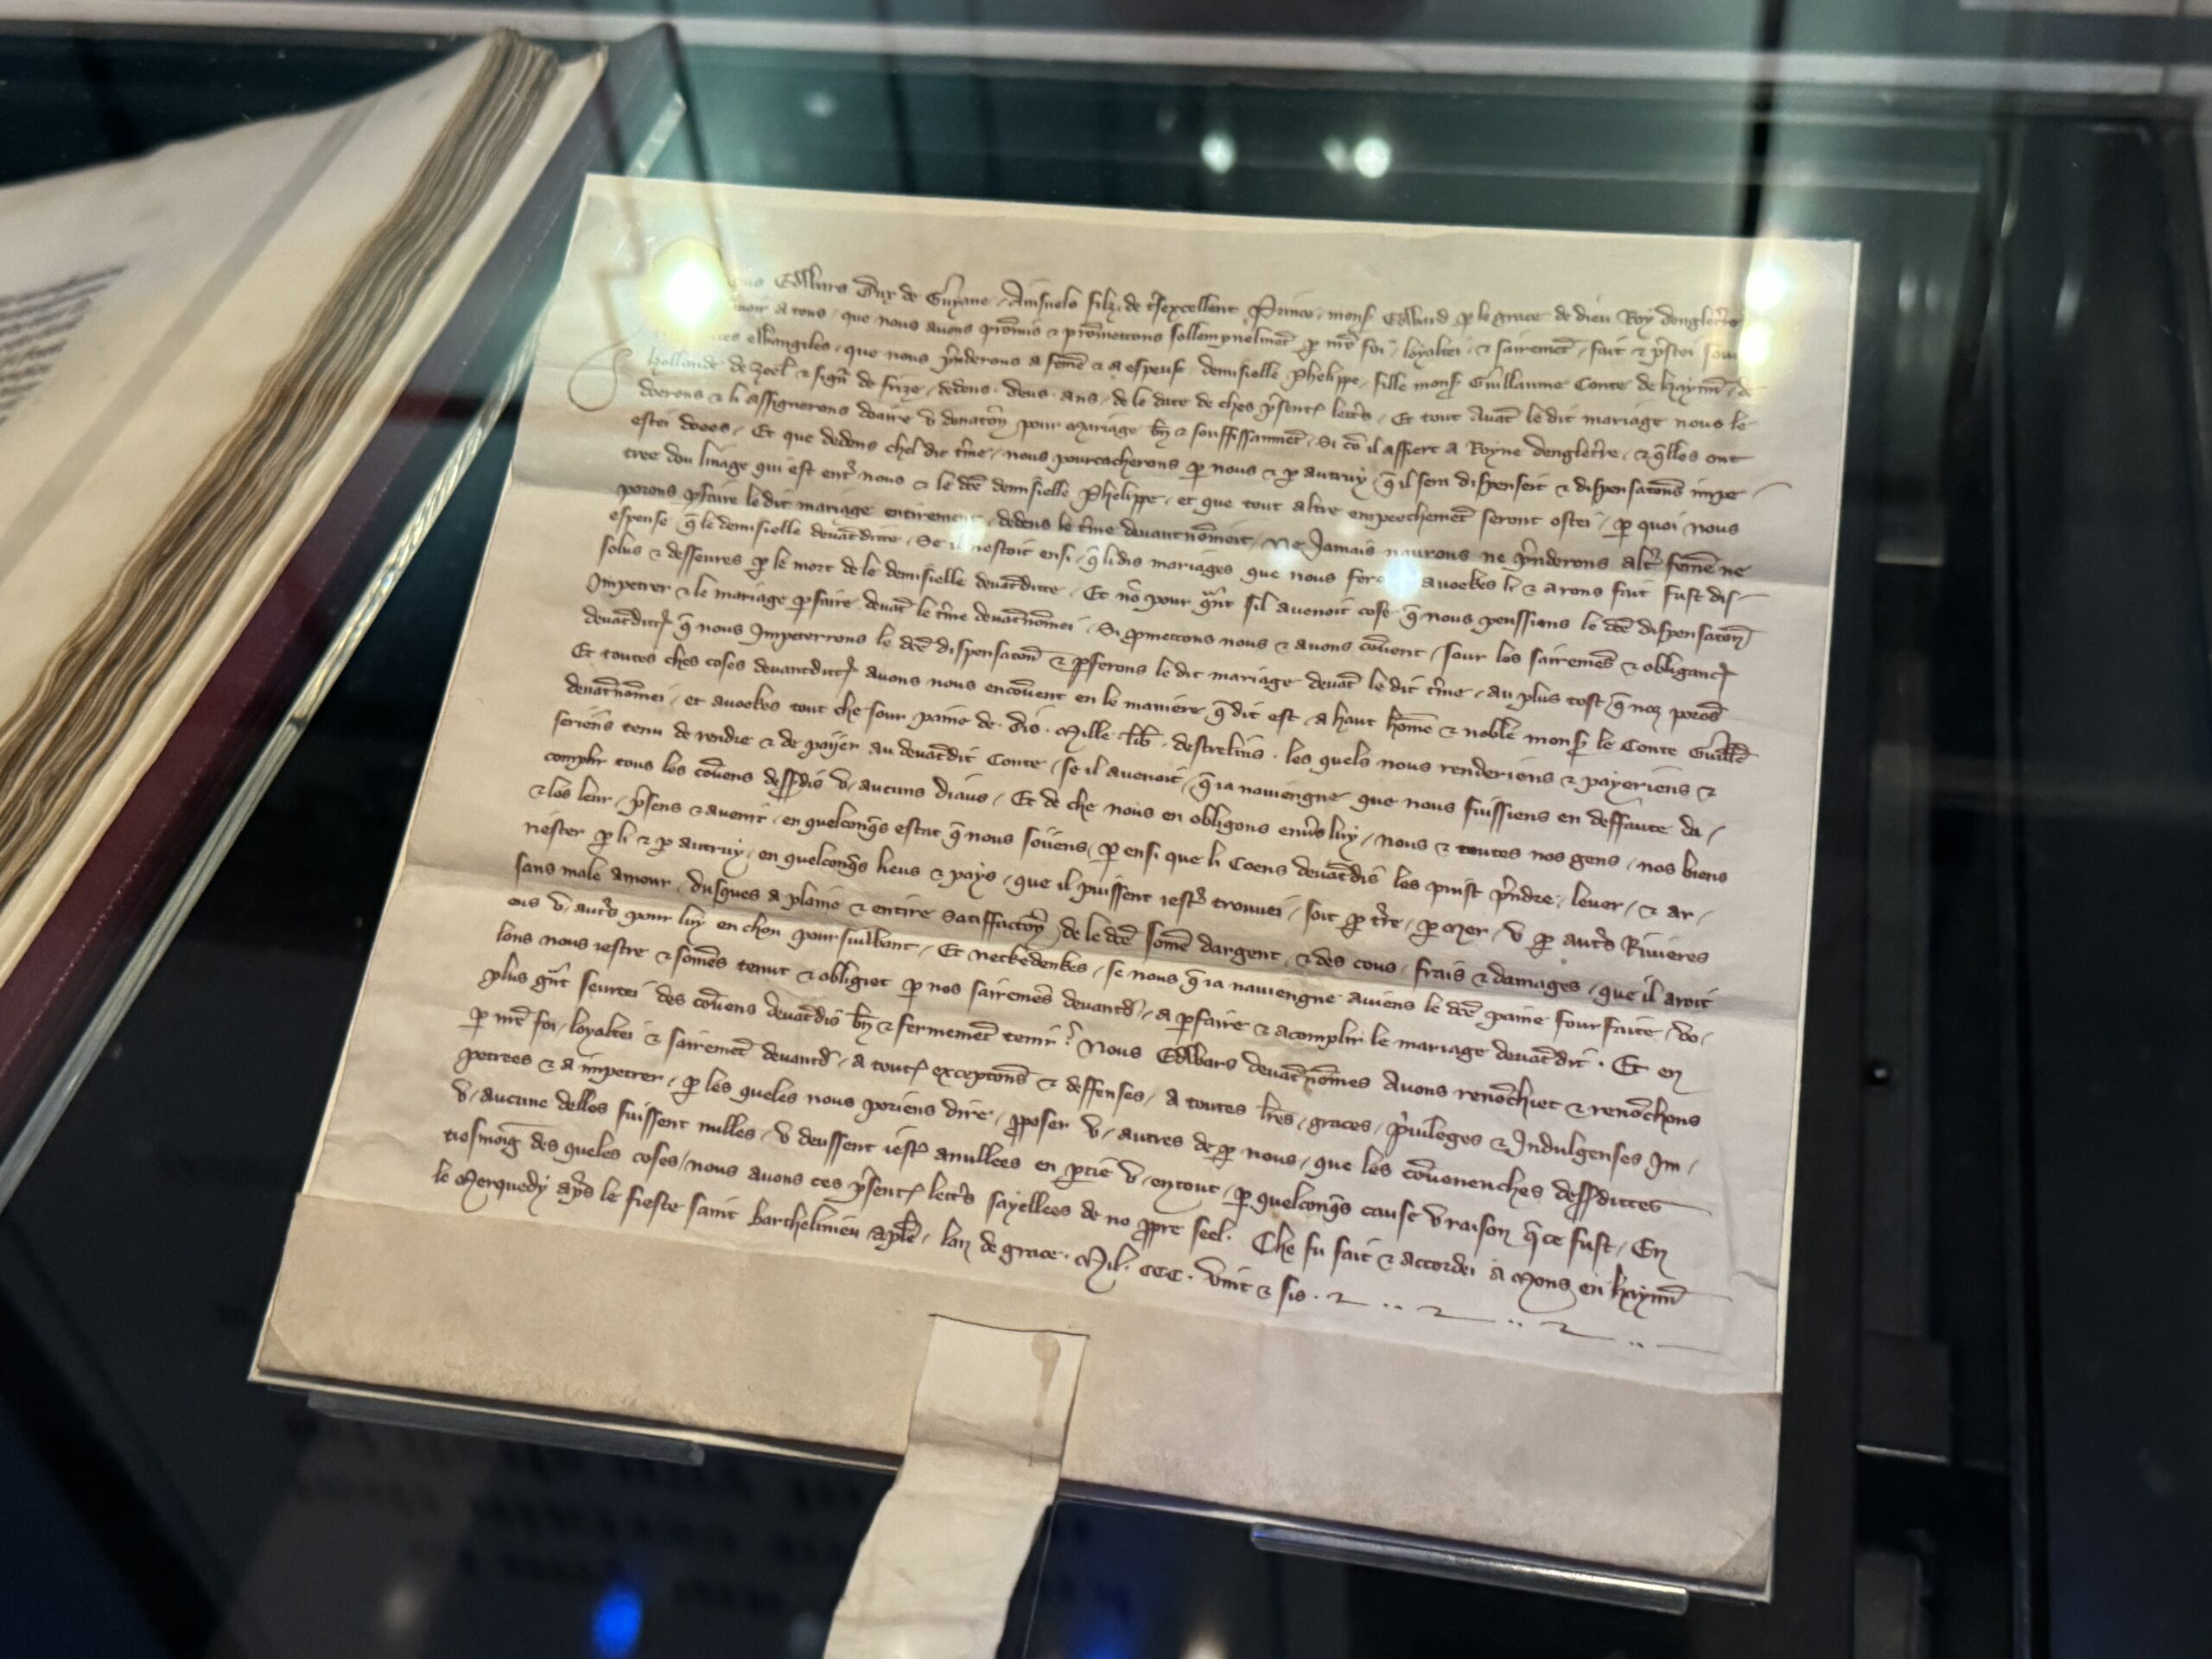 Edwars Dux de Guyane, Ainsnelo filz de tsexcellent Prince, mons Edward p le grace de dieu Roy denglet're
a tous, que nous avons promis & promettons sollempnelmet p nre foi, loyaltei, & sairemet, fait & p'stei sour
ewangiles, que nous p'nderons a feme & a espeuse demisielle Phelippe, fille mons Guillaume Conte de Haynn, de
Hollande de Zeel & sign de Frize, dedens deus ans, de le date de ches p'sent lett's, Et tout avat le dit mariage nous le
doerons & li assignerons doaire v donaton pour mariage bn & souffissanmet, Si co il affiert a Royne denglet're, & qlles ont
estei doees, Et que dedens chel dit t'me, nous pourcacherons p nous & p autruy, q il sera dispensei & dispensatons impe
tree dou linage qui est ent' nous & le dce demisielle Phelippe, et que tout altre empeechemet seront ostei, p quoi nous
porons pfaire le dit mariage entirement, dedens le t'me devantnomeit, Ne Jamais naurons ne p'nderons alt' feme ne
espeuse q le demisielle devatditte, Se il nestoit ensi, q li dis mariages que nous avoekes li & arons fait fust dis
solus & dessevres p le mort de le demisielle devatditte, Et no pour qnt sil avenoit cose q nous peussions le dce dispensaton
Impetrer & le mariage pfaire devat le t'me devatnomei, Si pmettons nous & avons covent, sour les sairemes & obliganc
devatditt q nous Impeterrons le dce dispensaton & pferons le dit mariage devat le dit t'me, au plus tost q noz poros
Et toutes ches coses devantditt avons nous encovent en le maniere q dit est, a haut home & noble mons le Conte Guille
devatnomei, et avoekes tout che sour paine de dis Mille lib destrelins, les quels nous renderiens & payeriens &
seriens tenu de rendre & de payer au devatdit Conte, se il avenoit, q ia navengne que nous fuissiens en deffaute da
complir tous les covens dessdis v aucuns diaus, Et de che nous en obligons env's luy, nous & toutes nos gens, nos biens
& les leur, p'sens & avenir, en quelconqs estat q nous soiiens, p ensi que li Coens devatdis les puist p'ndre, lever, & ar
riester p li & p autruy, en quelconqs lieus & pays, que il puissent iest' trouvei, soit p t're, p Mer, v p aut's Rivieres
sans male amour, dusques a plaine & entire satiffacton de le dce some dargent, & des cous, frais & damages, que il aroit
eus v aut's pour luy en chou poursuiwant, Et neckedenkes, se nous q ia navengne aviens le dce paine fourfaite, vo
lons nous iestre & somes tenut & obligiet p nos sairemes devantd, a pfaire & acomplir le mariage devatdit. Et en
plus gnt seurtei des covens devatdis bn & fermemet tenir, Nous Edwars devatnomes Avons renochiet & renochons
p nre foi, loyaltei & sairemet devantd, a tout exceptons & deffenses, a toutes lres, graces, p'vileges & Indulgenses Im
petrees & a impetrer, p les queles nous poriens dire, pposer v autres de p nous, que les covenenches dessdittes
v aucune delles fuissent nulles, v deussent iest' anullees en ptie v entout, p quelconqs cause v raison q ce fust, En
tiesmoig des queles coses, nous avons ces p'sent lett's sayellees de no ppre seel. Che fu fait & accordei a Mons en Haynn
le Merquedy ap's le fieste saint Barthelmieu aple, lan de grace. Mil. CCC. vint & sis.